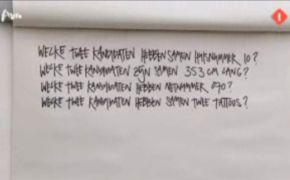 WELKE TWEE KANDIDATEN HEBBEN SAMEN HUISNUMMER 10?
WELKE TWEE KANDIDATEN ZIJN SAMEN 353 CM LANG?
WELKE TWEE KANDIDATEN HEBBEN NETNUMMER 070?
WELKE TWEE KANDIDATEN HEBBEN SAMEN TWEE TATTOOS?